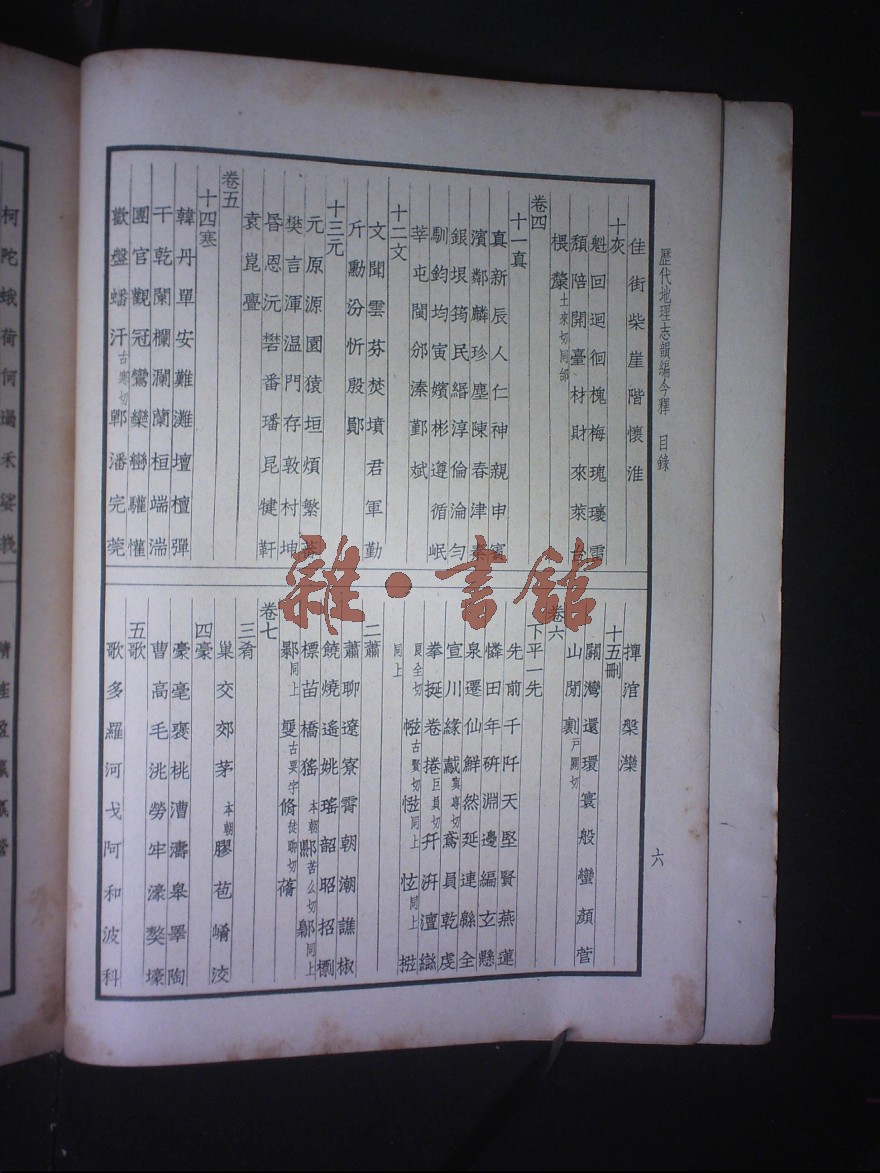 歷代地理志韻編今釋 目錄
六
佳街柴崖階懷淮
十灰
魁回迴徊槐梅瑰瓌雷
頹陪開臺材財來萊台
椳斄土來切同邰
卷四
十一真
真新辰人仁神親申賓
濱鄰麟珍塵陳春津秦
銀垠筠民緡淳倫淪勻
馴鈞均寅嬪彬遵循岷
莘屯閩邠溱鄞斌
十二文
文聞雲芬焚墳君軍勤
斤勳汾忻殷鄖
十三元
元原源園猿垣煩繁
樊言渾温門存敦村坤
昬恩沅礬番璠昆犍軒
袁崑亹
卷五
十四寒
韓丹單安難灘壇檀彈
干乾闌欄瀾蘭桓端湍
團官觀冠鸞欒巒驩懽
歡盤蟠汗古寒切鄲潘完莞
撣涫槃灤
十五刪
關灣還環寰般蠻顏菅
山閒裏戶關切
卷六
下平一先
先前千阡天堅賢燕蓮
憐田年研淵邊編玄懸
泉遷仙鮮然延連緜全
宣川緣鳶員乾虔
拳挻卷捲巨員切幵汧澶
古賢切同上 同上
同上
二蕭
蕭聊遼寮霄朝潮譙椒
饒燒遙姚瑤韶昭招
標苗橋猺本朝鄡苦么切鄥同上
鄡同上嫑古要字脩徙聊切蓨
卷七
三肴
巢交郊茅本朝膠苞崤洨
四豪
豪毫襃桃漕濤皋睪陶
曹高毛洮勞牢濠獒壕
五歌
歌多羅河戈阿和波科
柯陀蛾荷何過禾
雜·書館